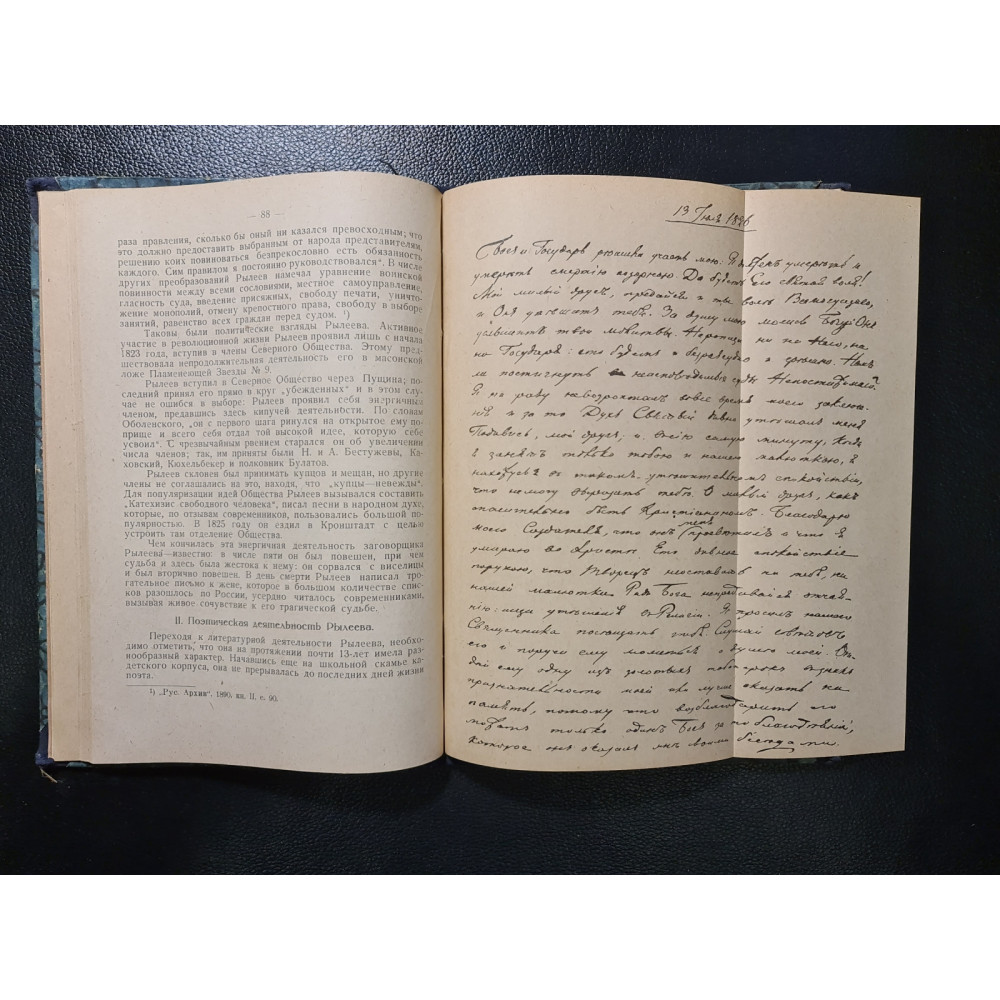 — 88 —
раза правления, сколько бы оный ни казался превосходным; что
это должно предоставить выбранным от народа представителям,
решению коих повиноваться безпрекословно есть обязанность
каждого. Сим правилом я постоянно руководствовался". В числе
других преобразований Рылеев намечал уравнение воинской
повинности между всеми сословиями, местное самоуправление,
гласность суда, введение присяжных, свободу печати, уничто-
жение монополий, отмену крепостного права, свободу в выборе
занятий, равенство всех граждан перед судом. ¹)
Таковы были политические взгляды Рылеева. Активное
участие в революционной жизни Рылеев проявил лишь с начала
1823 года, вступив в члены Северного Общества. Этому пред-
шествовала непродолжительная деятельность его в масонской
ложе Пламенеющей Звезды № 9.
Рылеев вступил в Северное Общество через Пущина; по-
следний принял его прямо в круг „убежденных" и в этом слу-
чае не ошибся в выборе: Рылеев проявил себя энергичным
членом, предавшись здесь кипучей деятельности. По словам
Оболенского, „он с первого шага ринулся на открытое ему по-
прище и всего себя отдал той высокой идее, которую себе
усвоил". С чрезвычайным рвением старался он об увеличении
числа членов; так, им приняты были Н. и А. Бестужевы, Ка-
ховский, Кюхельбекер и полковник Булатов.
Рылеев склонен был принимать купцов и мещан, но другие
члены не соглашались на это, находя, что „купцы—невежды".
Для популяризации идей Общества Рылеев вызывался составить
„Катехизис свободного человека", писал песни в народном духе,
которые, по отзывам современников, пользовались большой по-
пулярностью. В 1825 году он ездил в Кронштадт с целью
устроить там отделение Общества.
Чем кончилась эта энергичная деятельность заговорщика
Рылеева—известно: в числе пяти он был повешен, при чем
судьба и здесь была жестока к нему: он сорвался с виселицы
и был вторично повешен. В день смерти Рылеев написал тро-
гательное письмо к жене, которое в большом количестве спис-
ков разошлось по России, усердно читалось современниками,
вызывая живое сочувствие к его трагической судьбе.
II. Поэтическая деятельность Рылеева.
Переходя к литературной деятельности Рылеева, необхо-
димо отметить, что она на протяжении почти 13-лет имела раз-
нообразный характер. Начавшись еще на школьной скамье ка-
детского корпуса, она не прерывалась до последних дней жизни
поэта.
¹) „Рус. Архив". 1890. кн. II, с. 90.
13 Июля 1826
Богъ и Государь решили участь мою: Я долженъ умереть и
умереть смертію позорною. Да будетъ Его святая воля!
Мой милый другъ, предайся и ты воле Всемогущаго,
и Онъ утешитъ тебя. За душу мою молись Богу: Онъ
услышитъ твои молитвы. Не ропщи ни на Него, ни
на Государя: это будетъ и безразсудно и грешно. Намъ
ли постигнуть неисповедимые суды Непостижимаго?
Я ни разу не возропталъ во все время моего заключе-
нія и за то Духъ Святый дивно утешалъ меня
Подивись, мой другъ, и въ сію самую минуту, когда
я занятъ только тобою и нашею малюткою, я
нахожусь въ такомъ утешительномъ спокойствіи,
что не могу выразить тебе. О милый другъ, какъ
спасительно быть Христіаниномъ. Благодарю
моего Создателя, что онъ меня просветилъ и что я
умираю во Христе. Это дивное спокойствіе
порукою, что Творецъ не оставитъ ни тебя, ни
нашей малютки. Ради Бога не предавайся отчая-
нію: ищи утешенія въ Религіи. Я просилъ нашего
Священника посещать тебя. Слушай советовъ
его и поручи ему молиться о душе моей. От-
дай ему одну изъ золотыхъ табакерокъ въ знакъ
признательности моей или лучше сказать на
память, потому что возблагодарить его
можетъ только одинъ Богъ за то благодеяніе,
которое онъ оказалъ мне своими беседами.